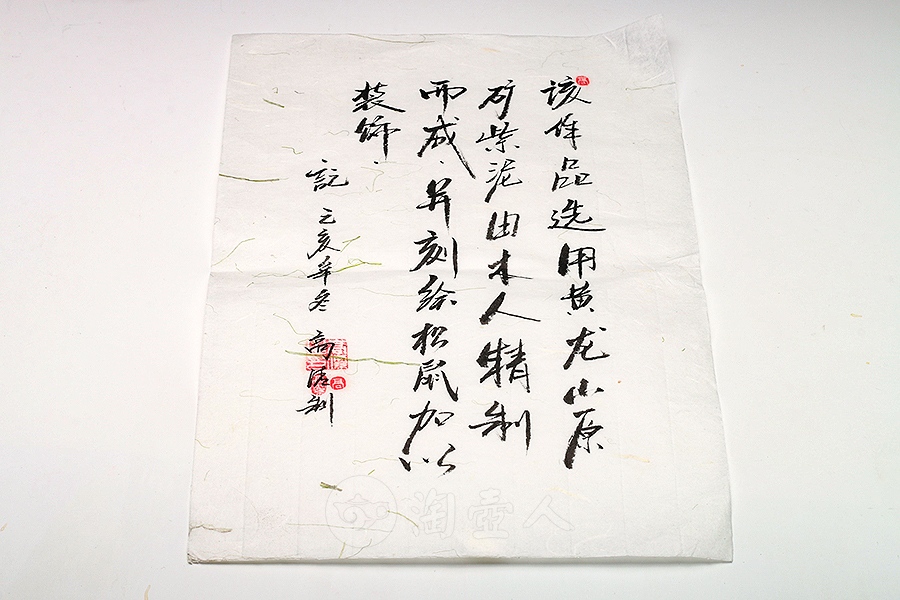 该作品选用黄龙山原
矿紫泥由本人精制
而成、并刻绘松鼠加以
装饰.
記 己亥年冬 高
淘壺人